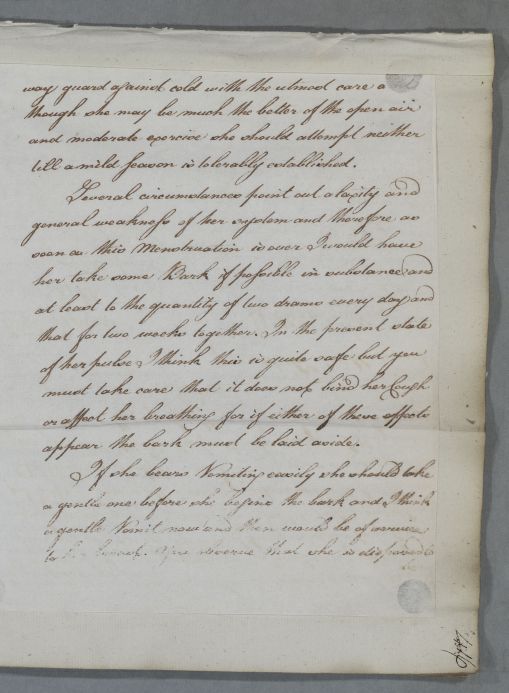 way guard against cold with the utmost care a
though she may be much the better of the open air
and moderate exercise she should attempt neither
till a mild season is tolerably established.
Several circumstances point out a laxity and
general weakness of her system and therefore as
soon as this Menstruation is over I would have
her take some Bark if possible in substance and
at least to the quantity of two drams every day and
that for two weeks together. In the present state
of her pulse I think this is quite safe but you
must take care that it does not bind her Cough
or affect her breathing for if either of these effects
appear the bark must be laid aside.
If she bears Vomiting easily she should take
a gentle one before she begins the bark and I think
a gentle Vomit now and then would be of service
to her breast. You observe that she is disposed to